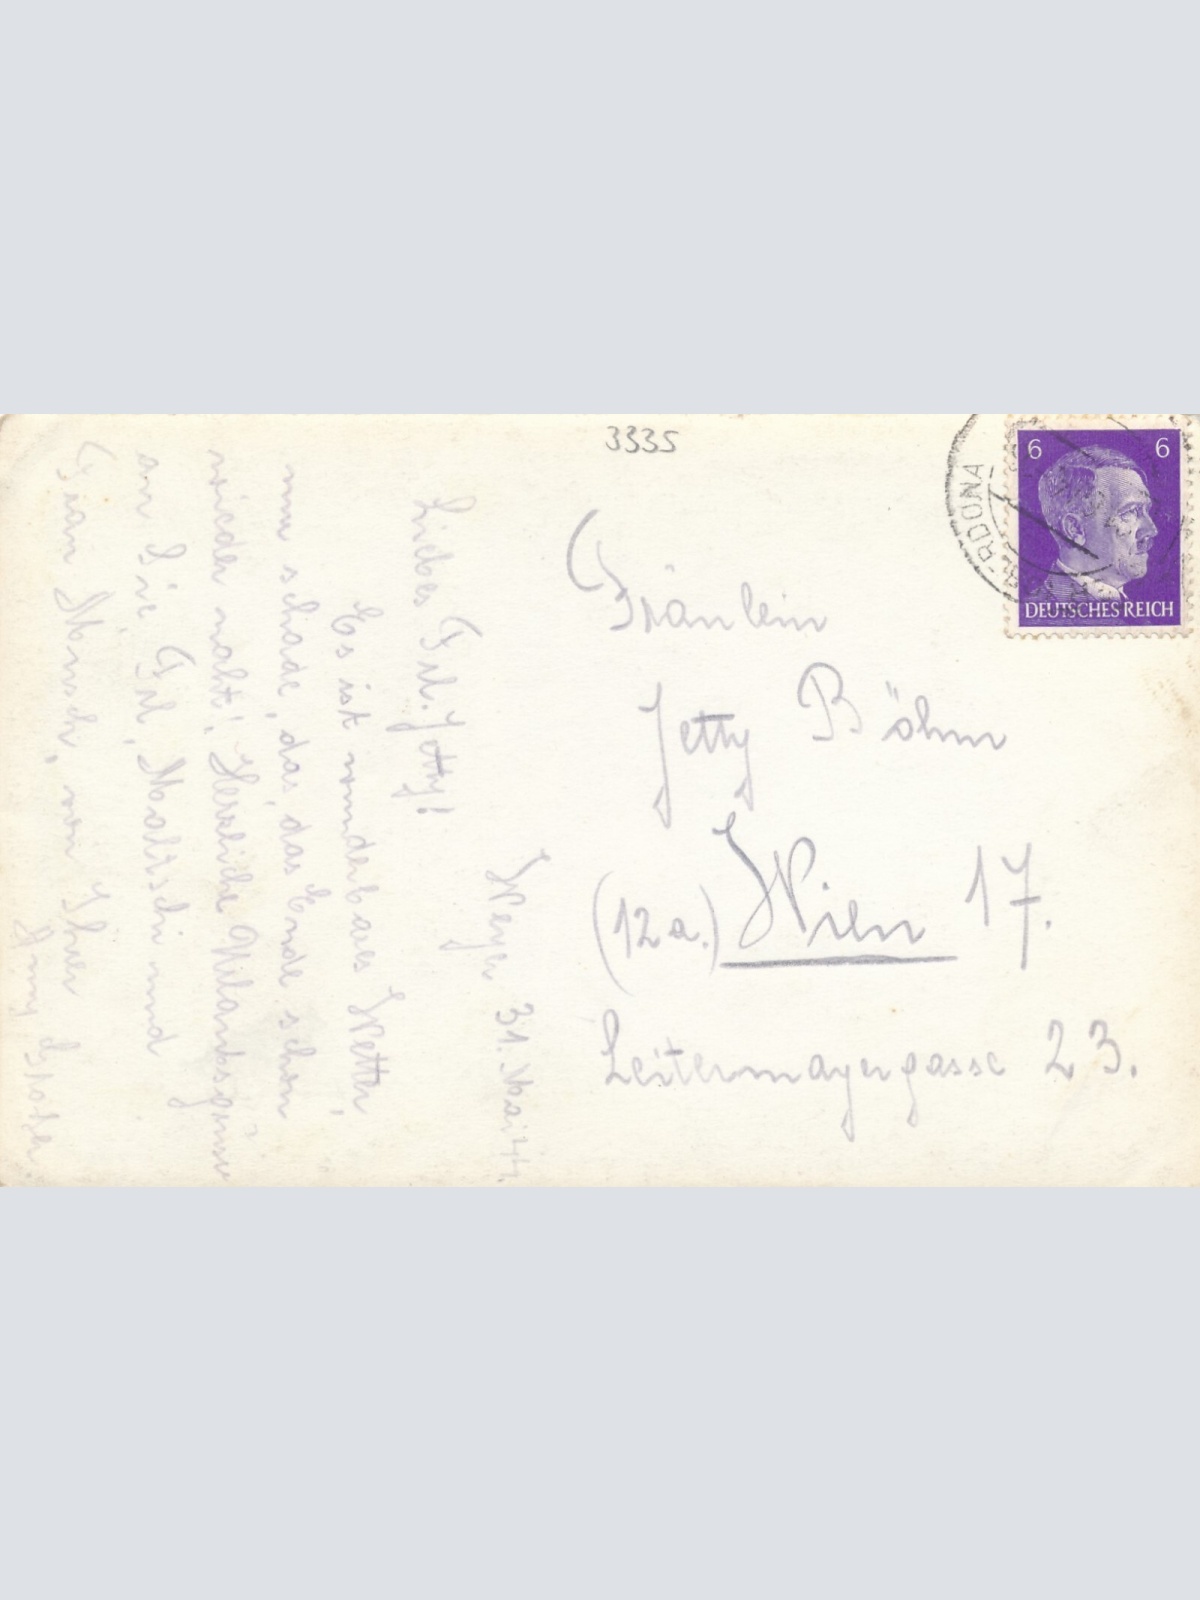 3335
6 6
DEUTSCHES REICH
RDONA
Weyer 31. Mai 44.
Liebes Frl. Jetty!
Es ist wunderbares Wetter,
nur schade, das, das Ende schon
wieder naht! Herzliche Urlaubsgrüsse
an Sie Frl. und
Frau Mensch, von Ihrer
Fräulein
Jetty Böhm
(12a.) Wien 17.
Leitermayergasse 23.